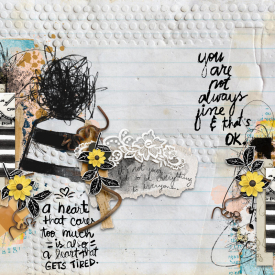 you
are
not
always
fine
& that's
OK.
everything
to everyone
a heart
that cares
too much
is also
a heart that
GETS TIRED.